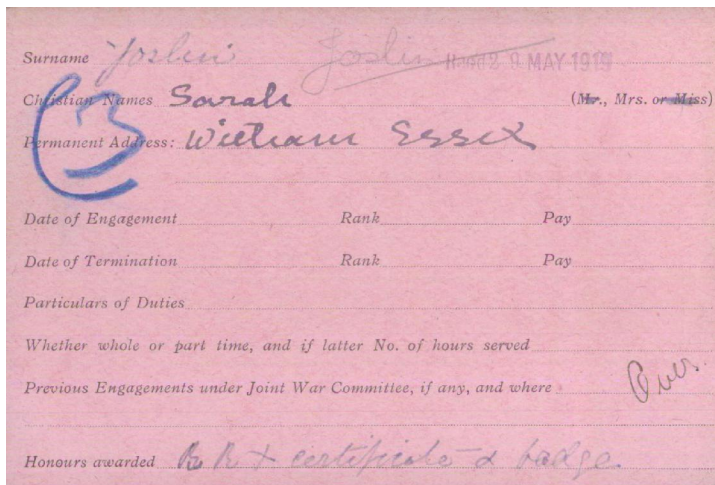 Surname Joslin Joslin Recd 28 MAY 1919
Christian Names Sarah (Mr., Mrs. or Miss)
Permanent Address: Witham Essex
Date of Engagement Rank Pay
Date of Termination Rank Pay
Particulars of Duties
Whether whole or part time, and if latter No. of hours served
Previous Engagements under Joint War Committee, if any, and where
Over.
Honours awarded certificate & badge.